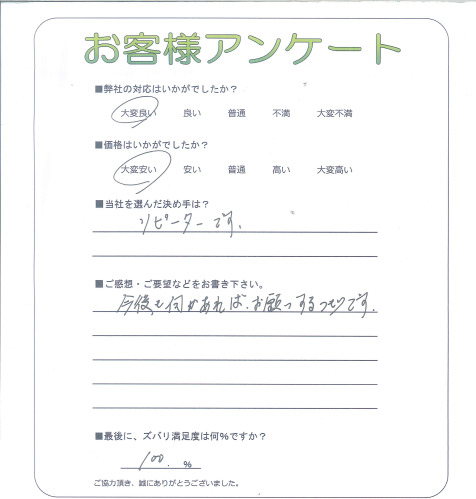 お客様アンケート
■弊社の対応はいかがでしたか？
大変良い 良い 普通 不満 大変不満
■価格はいかがでしたか？
大変安い 安い 普通 高い 大変高い
■当社を選んだ決め手は？
リピーターです。
■ご感想・ご要望などをお書き下さい。
今後も何かあれば、お願いするつもりです。
■最後に、ズバリ満足度は何%ですか？
100. %
ご協力頂き、誠にありがとうございました。